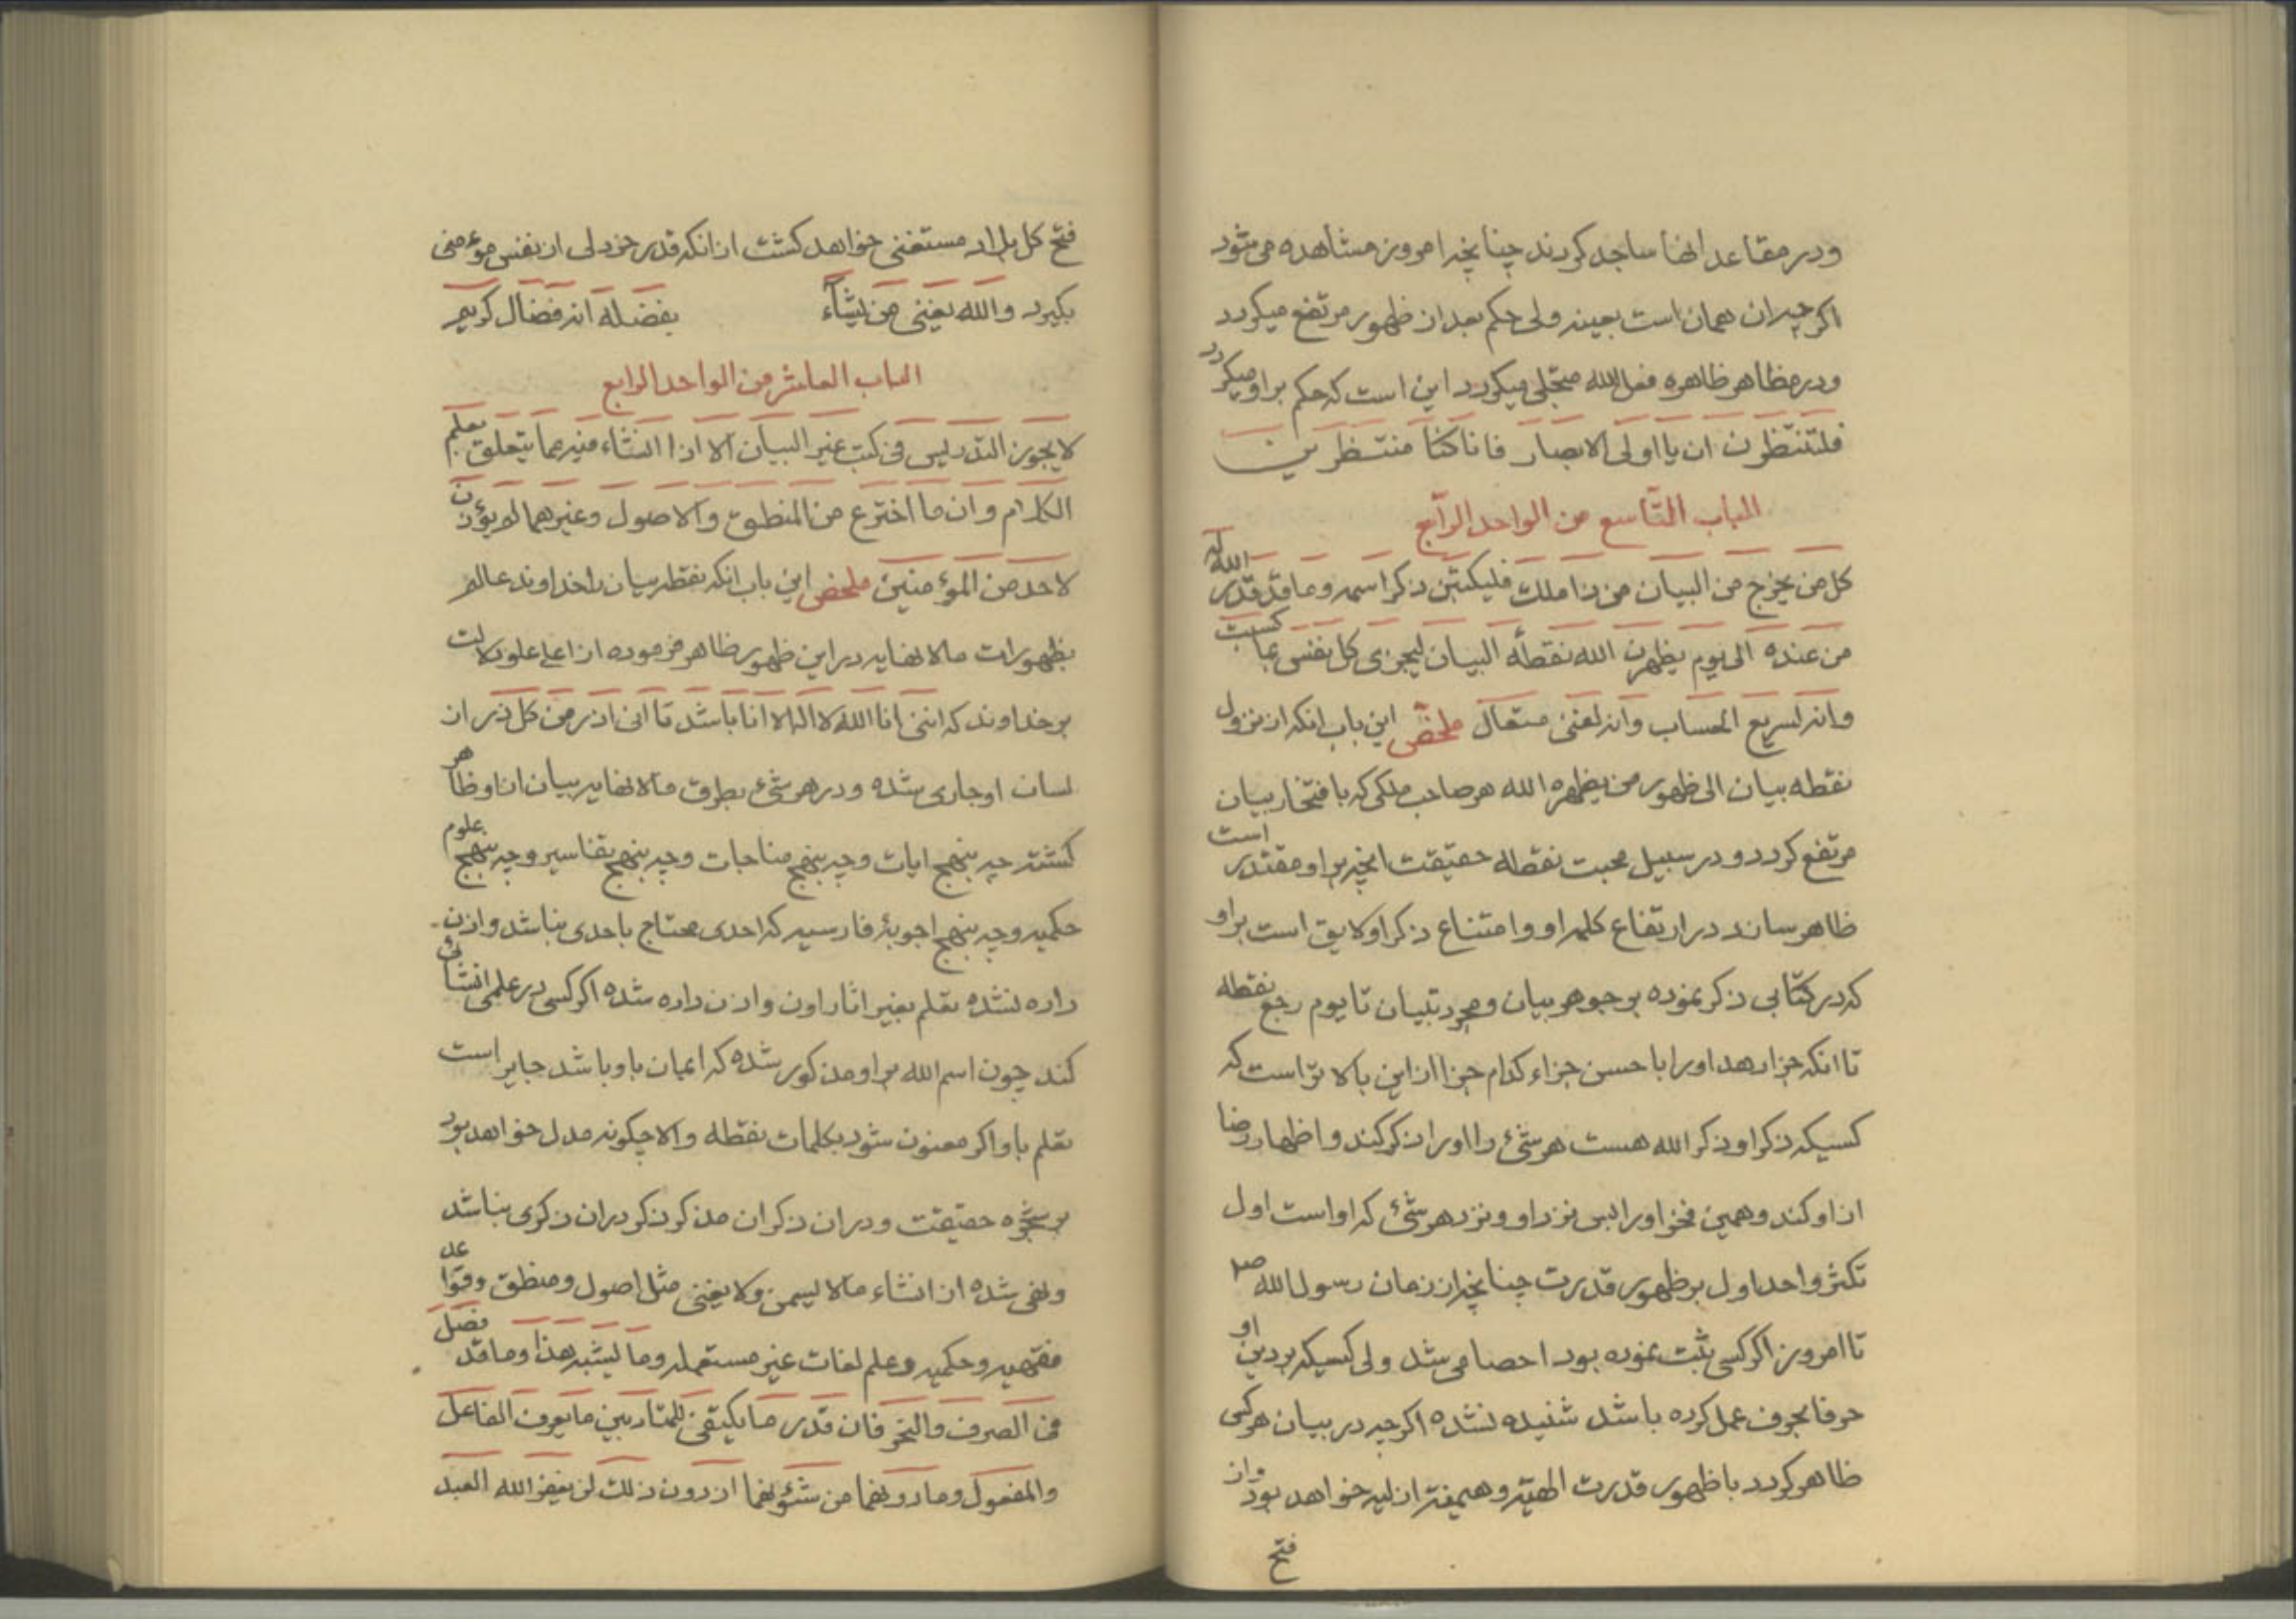 و در مقاعد انها ساجد کردند چنانچه امروز مشاهده می شود
اکرچه ان همان است بعینه ولی حکم بعد از ظهور مرتفع میکردد
و در مظاهر ظاهره فعل الله متجلی میکردد این است که حکم بر او میکردد
فلتنظرن ان یا اولی الابصار فانا کنا منتظرین
الباب التاسع من الواحد الرابع
کل من یخرج من البیان من ذا ملک فلیکتبن ذکر اسمه و ما قد قدر الله له
من عنده الی یوم یظهرن الله نقطة البیان لیجزی کل نفس بما کسبت
وانه لسریع الحساب وانه لغنی متعال ملخص این باب انکه از نزول
نقطه بیان الی ظهور من یظهره الله هر صاحب ملکی که بافتخار بیان
مرتفع کردد و در سبیل محبت نقطه حقیقت انچه بر او مقتدر است
ظاهر ساند در ارتفاع کلمه او و امتناع ذکر او لایق است بر او
که در کتابی ذکر نموده بر جوهر بیان و مجرد تبیان تا یوم رجع نقطه
تا انکه جزا دهد او را باحسن جزاء کدام جزا از این بالا تر است که
کسیکه ذکر او ذکر الله هست هر شیئ را او را ذکر کند و اظهار رضا
از او کند و همین فخر او را بس نزد او و نزد هر شیئ که او است اول
تکثر واحد اول بر ظهور قدرت چنانچه از زمان رسول الله ص
تا امروز اکر کسی ثبت نموده بود احصا می شد ولی کسیکه بر دین او
حرفا بحرف عمل کرده باشد شنیده نشده اکرچه در بیان هر کس
ظاهر کردد با ظهور قدرت الهیه و هیمنه ازلیه خواهد بود و از
فتح
فتح کل بلاد مستغنی خواهد کشت از انکه قدر خردلی از نفس مؤمنی
بکیرد والله یغنی من یشآء بفضله انه فضال کریم
الباب العاشر من الواحد الرابع
لا یجوز التدریس فی کتب غیر البیان الا اذا انشاء فیه مما یتعلق بعلم
الکلام وان ما اخترع من المنطق والاصول وغیرهما لم یؤذن
لاحد من المؤمنین ملخص این باب انکه نقطه بیان را خداوند عالم
بظهورات ما لا نهایه در این ظهور ظاهر فرموده از اعلی علو دلالت
بر خداوند که اننی انا الله لا اله الا انا باشد تا ادنی ذر من کل ذر از
لسان او جاری شده و در هر شیئ بطرق ما لا نهایه بیان از او ظاهر
کشته چه بنهج ایات و چه بنهج مناجات و چه بنهج تفاسیر و چه بنهج علوم
حکمیه و چه بنهج اجوبهٔ فارسیه که احدی محتاج باحدی نباشد و اذن
داده نشده تعلم بغیر اثار اون و اذن داده شده اکر کسی در علمی انشائی
کند چون اسم الله بر او مذکور شده که ایمان باو باشد جایز است
تعلم باو اکر معنون شود بکلمات نقطه والا چکونه مدل خواهد بود
بر شجره حقیقت و در ان ذکر ان مذکر ذکر در ان ذکری نباشد
و نهی شده از انشاء ما لا یسمن ولا یغنی مثل اصول و منطق و قواعد
فقهیه و حکمیه و علم لغات غیر مستعمله و ما یشبه هذا و ما قد فصل
فی الصرف والنحو فان قدر ما یکفی للمتادبین ما یعرف الفاعل
والمفعول و ما دونهما من شئونهما اذ دون ذلک لن یغفر الله العبد